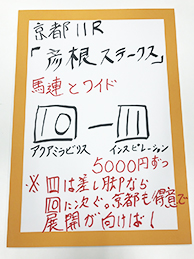 京都11R
「彦根ステークス」
馬連とワイド
10 — 11
アクアミラビリス インスピレーション
5000円ずつ
※ 11は差し脚なら
10に次ぐ。京都も得意で
展開が向けば!